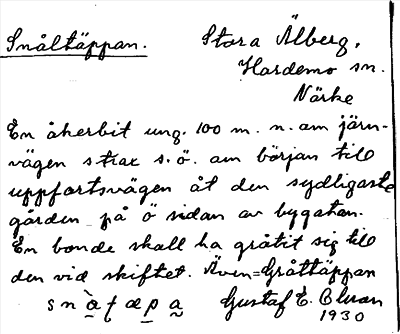 Snåltäppan. Stora Älberg,
Hardemo sn.
Närke
En åkerbit ung. 100 m. n. om järn-
vägen strax s.ö. om början till
uppfartsvägen åt den sydligaste
gården på ö sidan av bygatan.
En bonde skall ha gråtit sig till
den vid skiftet. Även = Gråttäppan
Gustaf E.
1930